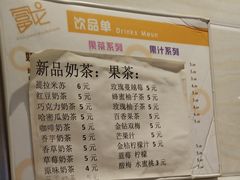 饮品单
Drinks Menu
果茶系列
果汁系列
新品奶茶：
提拉米苏 6元
红豆奶茶 5元
巧克力奶茶 5元
哈密瓜奶茶 5元
咖啡奶茶 5元
香芋奶茶 5元
香草奶茶 5元
草莓奶茶 5元
原味奶茶 4元
果茶：
玫瑰蔓越莓 5元
蜂蜜柚子茶 5元
玫瑰柚子茶 5元
百香果茶 5元
金桔双梅 5元
芒果汁 5元
金桔柠檬汁 5元
蓝莓 柠檬
酸梅 水蜜桃 3元